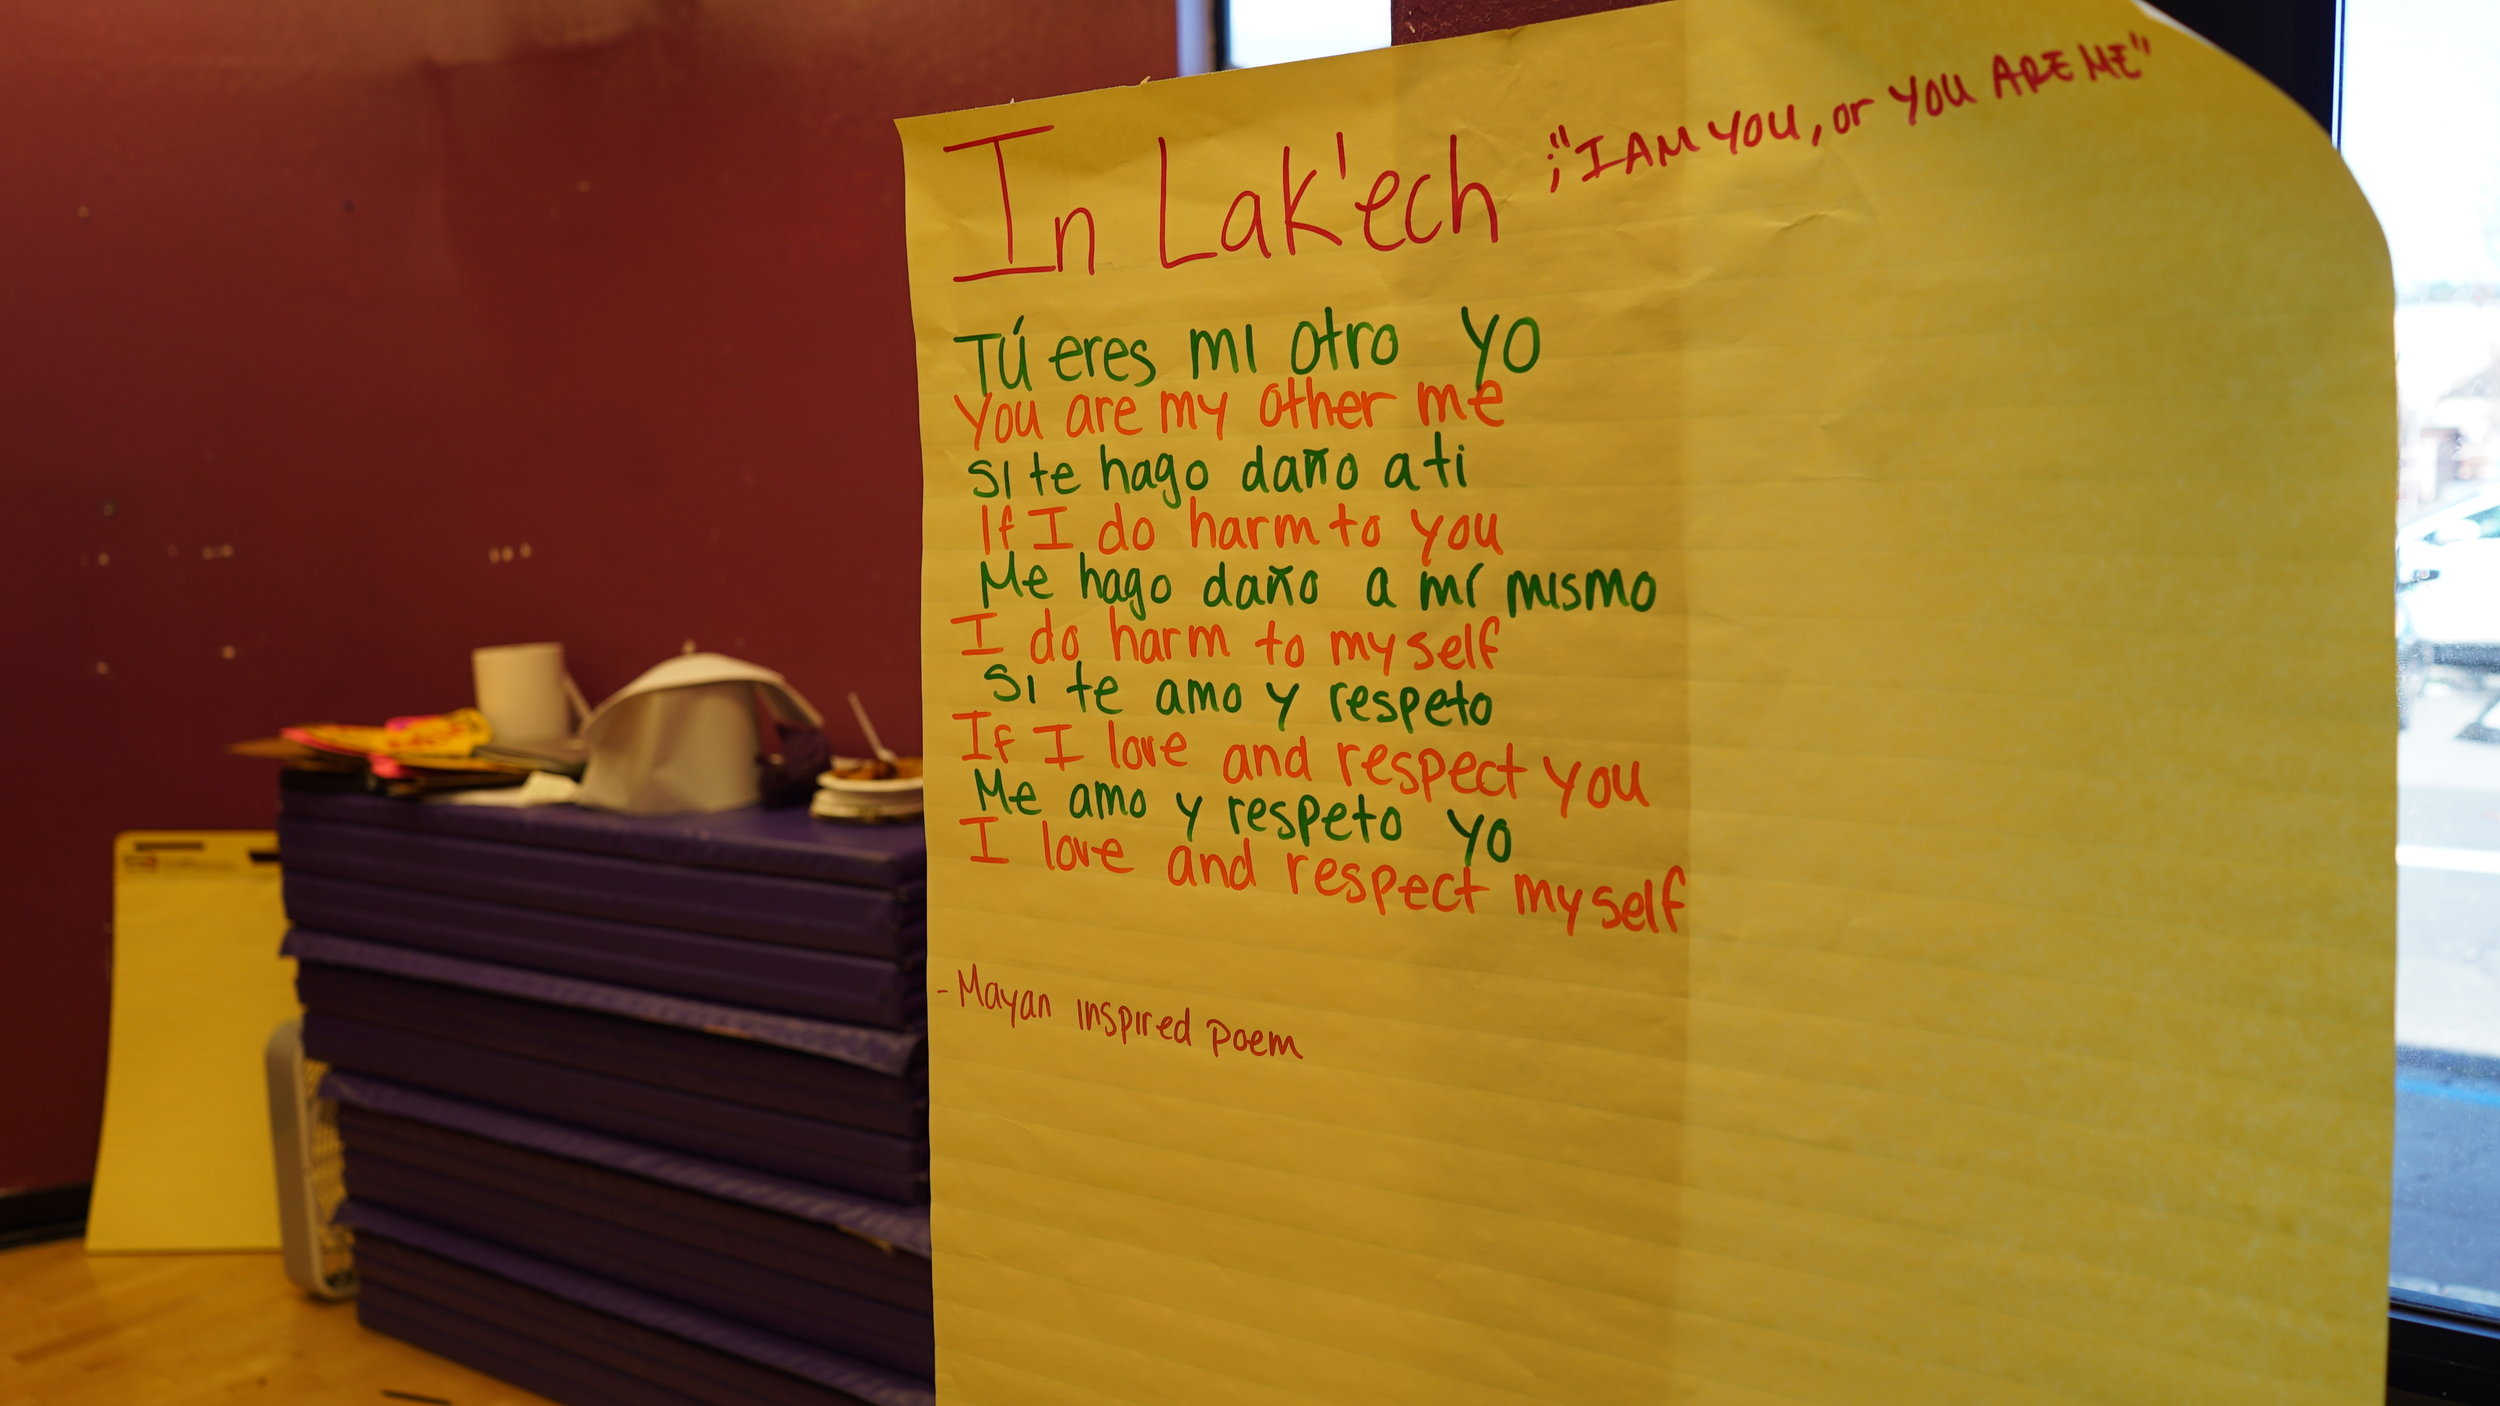 In Lak'ech ;"I AM YOU, or YOU ARE ME"
Tú eres mi otro yo
You are my other me
Si te hago daño a ti
If I do harm to you
Me hago daño a mí mismo
I do harm to myself
Si te amo y respeto
If I love and respect you
Me amo y respeto yo
I love and respect myself
- Mayan inspired poem